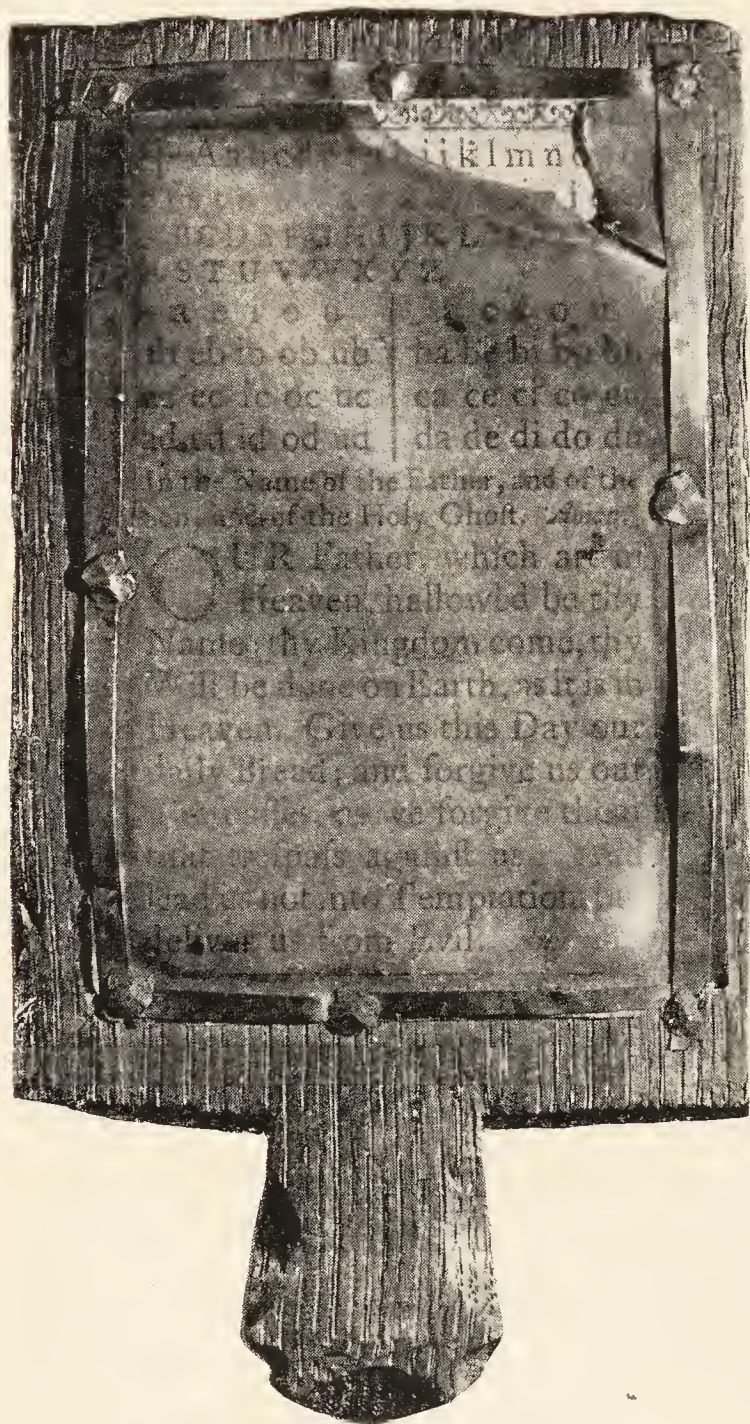 i j k l m n
A B C D E F G H I J K L
S T U V W X Y Z
a e i o u a e i o u
eb ib ob ub ba be bi bo bu
ac ec ic oc uc ca ce ci co cu
ad ed id od ud da de di do du
In the Name of the Father, and of the
Son, and of the Holy Ghoſt. Amen.
OUR Father, which art in
Heaven, hallowed be thy
Name; thy Kingdom come, thy
Will be done on Earth, as it is in
Heaven. Give us this Day our
daily Bread; and forgive us our
as we forgive them
that treſpaſs againſt us And
lead us not into Temptation, but
deliver us from Evil.